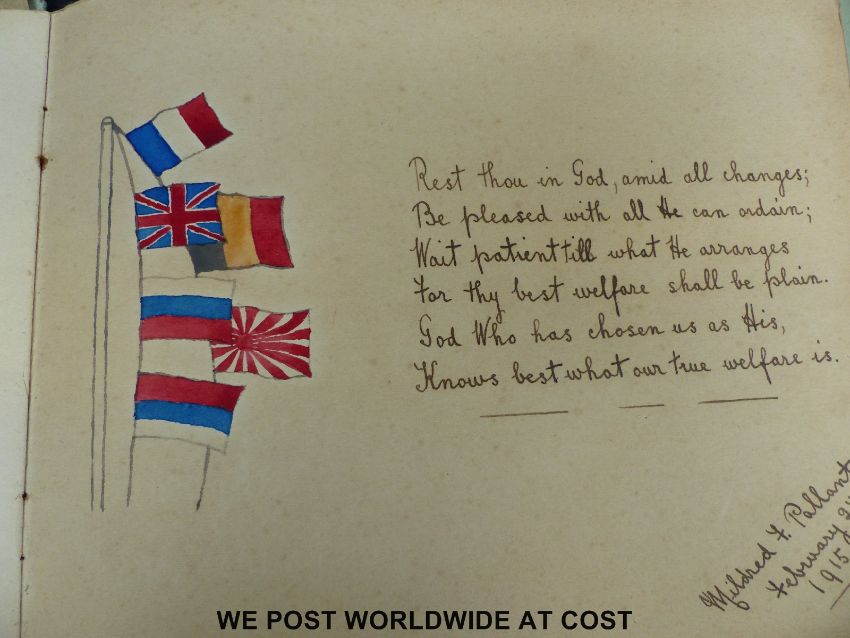 Rest thou in God, amid all changes;
Be pleased with all He can ordain;
Wait patient till what He arranges
For thy best welfare shall be plain.
God Who has chosen us as His,
Knows best what our true welfare is.
Mildred F. Pallant
February
1915
WE POST WORLDWIDE AT COST